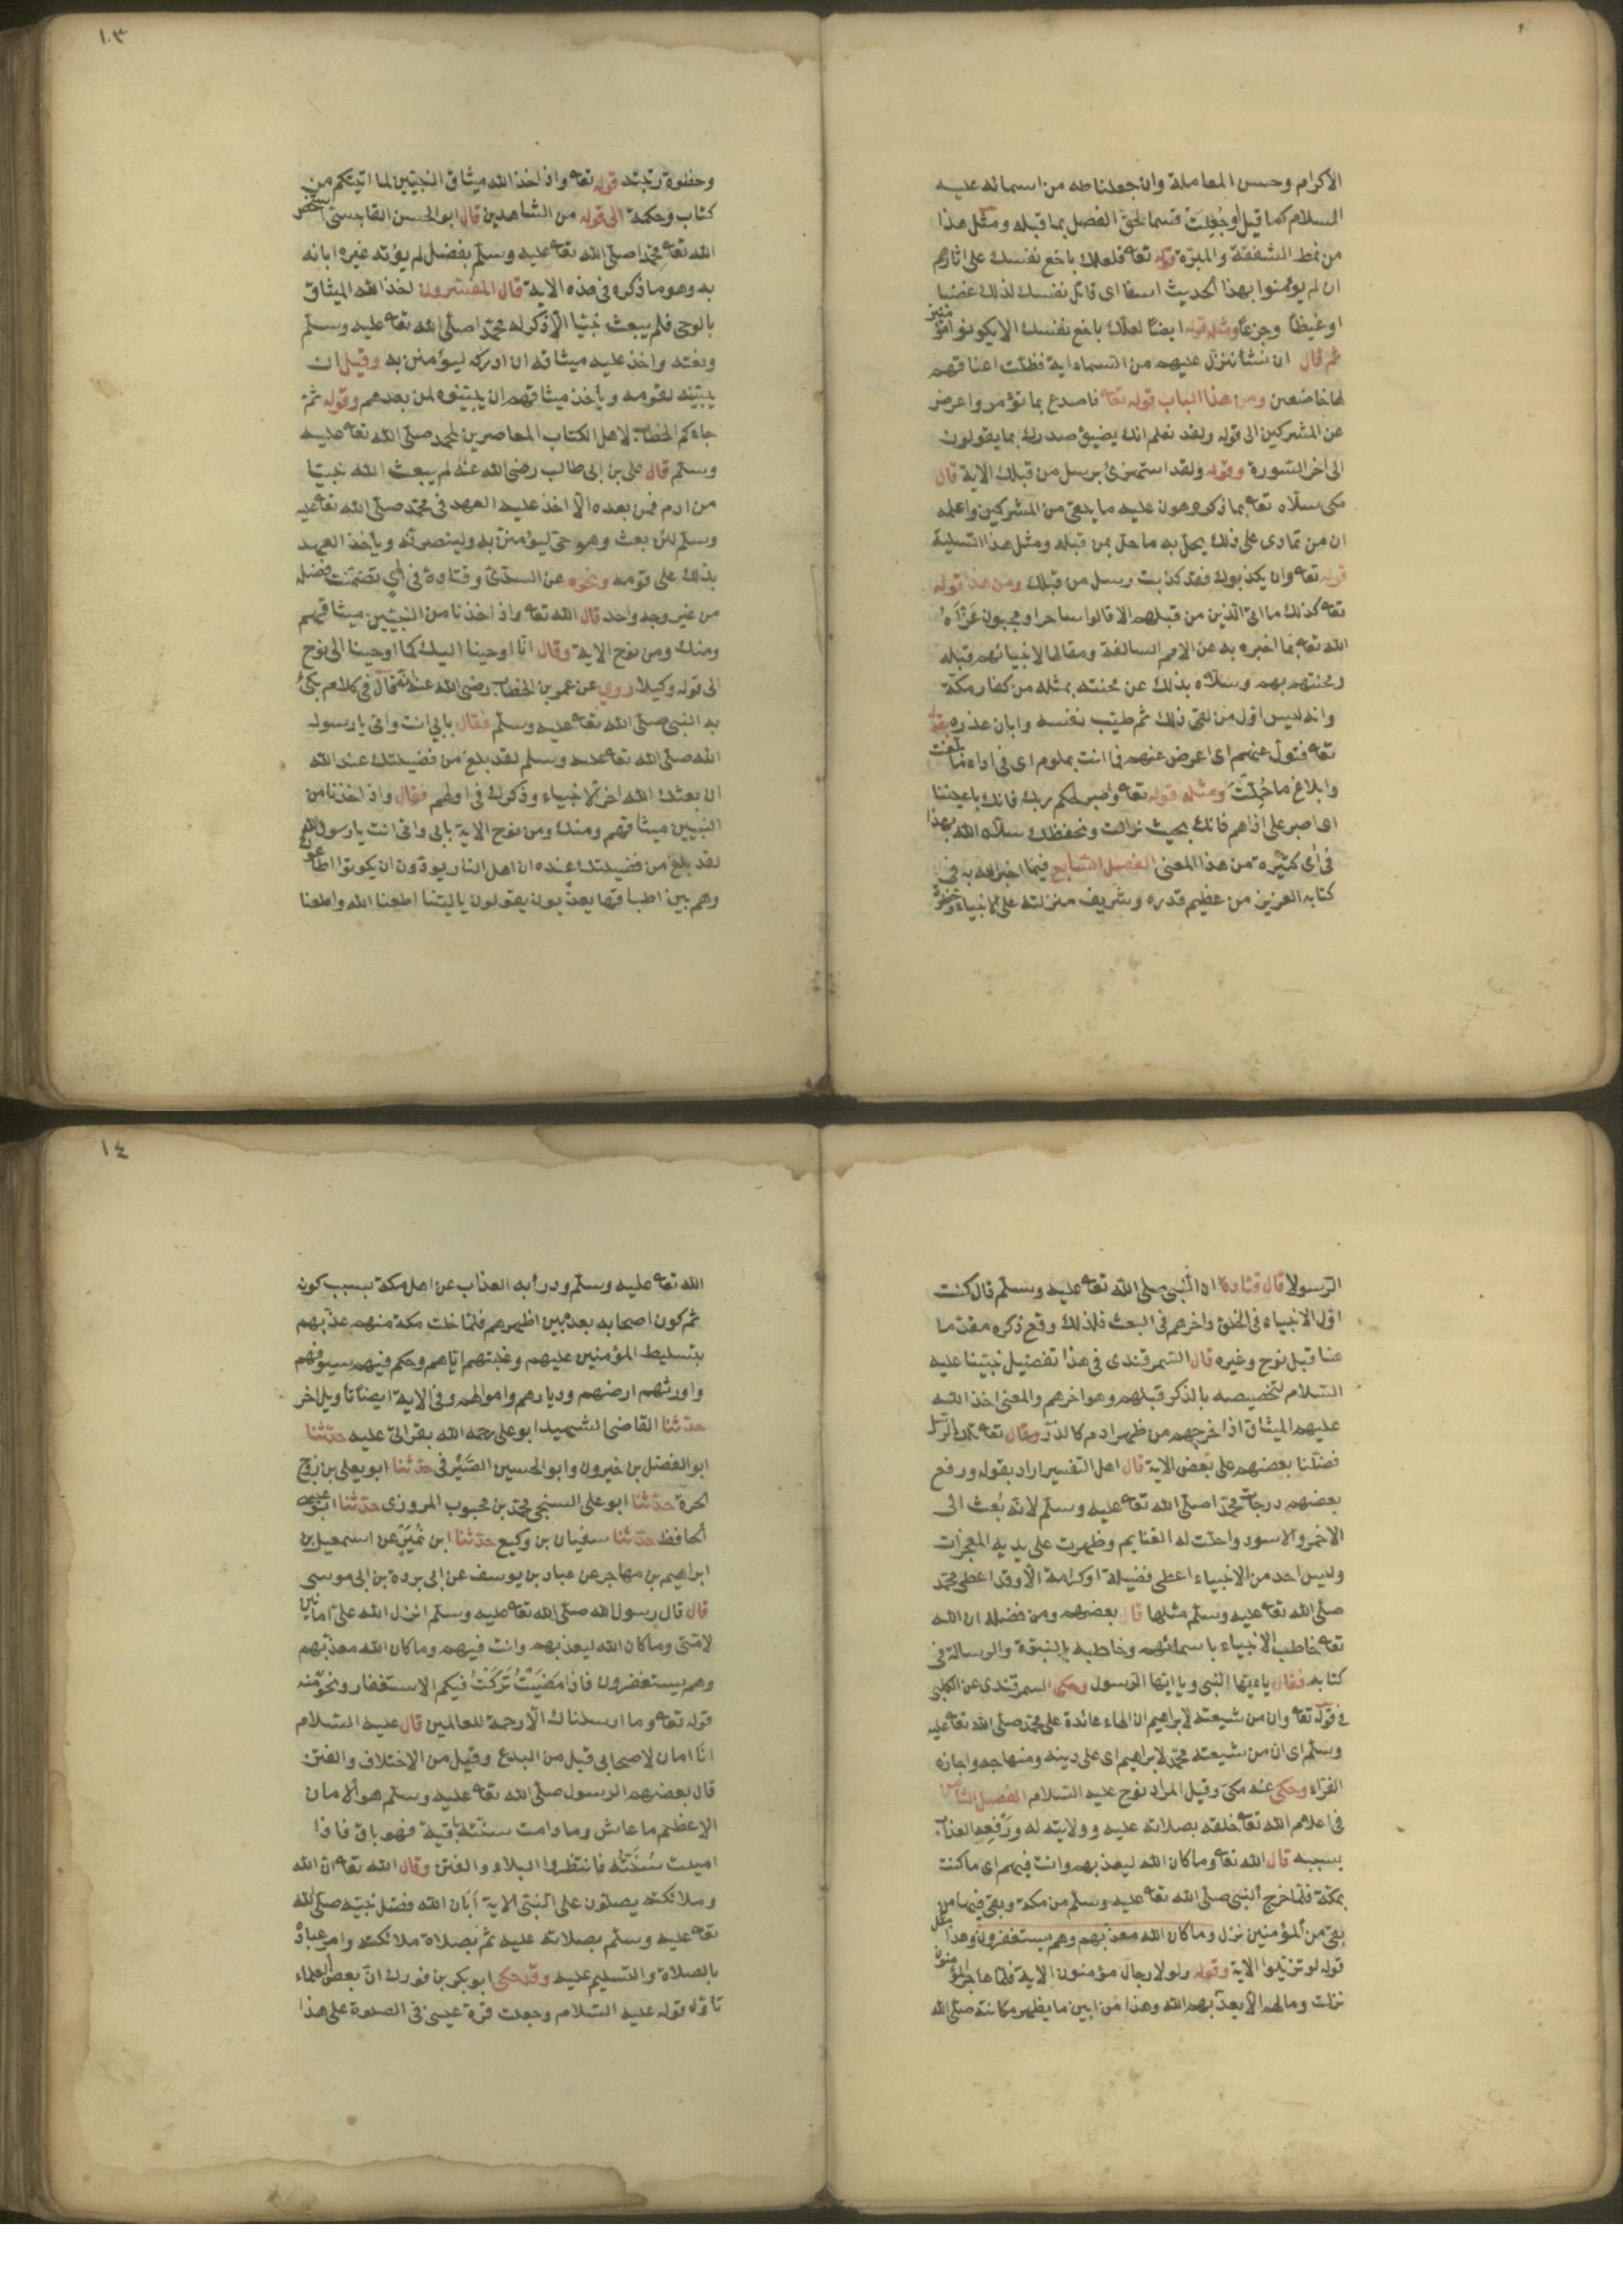 الاكرام وحسن المعاملة وان جعلنا طه من اسمائه عليه
السلام كما قيل او جُعِلَت قسما لحق الفصل بما قبله ومثل هذا
من نمط الشفقة والمبرّة قوله تعا فلعلك باخع نفسك على اثارهم
ان لم يؤمنوا بهذا الحديث اسفا اى قاتل نفسك لذلك غضبا
او غيظاً وجزعا ومثله قوله ايضاً لعلك باخع نفسك الا يكونوا مؤمنين
ثم قال ان نشأ ننزل عليهم من السماء اية فظلت اعناقهم
لها خاضعين ومن هذا الباب قوله تعا فاصدع بما تؤمر واعرض
عن المشركين الى قوله ولقد نعلم انك يضيق صدرك بما يقولون
الى اخر السّورة وقوله ولقد استهزئ برسل من قبلك الاية قال
مكى سلّاه تعا بما ذكر وهون عليه ما يلقى من المشركين واعلمه
ان من تمادى على ذلك يحل به ما حلّ بمن قبله ومثل هذا التسلية
قوله تعا وان يكذبوك فقد كذبت رسل من قبلك ومن هذا قوله
تعا كذلك ما اتى الّذين من قبلهم الا قالوا ساحر او مجنون عَزَّاهُ
الله تعا بما اخبره به عن الامم السالفة ومقالها لانبيائهم قبله
ومحنتهم بهم وسلّاه بذلك عن محنته بمثله من كفار مكّة
وانه ليس اوّل من لقى ذلك ثم طيّب نفسه وابان عذره بقوله
تعا فتولّ عنهم اى اعرض عنهم فما انت بملوم اى فى اداء ما بلّغت
وابلاغ ما حُمِّلْتَ ومثله قوله تعا واصبر لحكم ربك فانك باعيننا
اى اصبر على اذاهم فانك بحيث نراك ونحفظك سلّاه الله بهذا
فى آى كثيرة من هذا المعنى الفصل السّابع فيما اخبر الله به فى
كتابه العزيز من عظيم قدره وشريف منزلته على الانبياء وحظوة
١٠٣
وحظوة رتبته قوله تعا واذ اخذ الله ميثاق النبيّين لما اتيتكم من
كتاب وحكمة الى قوله من الشاهدين قال ابو الحسن القابسىّ استخصّ
الله تعا محمّدا صلّى الله تعا عليه وسلّم بفضل لم يؤته غيره ابانه
به وهو ما ذكره فى هذه الاية قال المفسّرون اخذ الله الميثاق
بالوحى فلم يبعث نبيّا الّا ذكر له محمّدا صلّى الله تعا عليه وسلّم
ونعته واخذ عليه ميثاقه ان ادركه ليؤمنن به وقيل ان
يبيّنه لقومه ويأخذ ميثاقهم ان يبيّنوه لمن بعدهم وقوله ثمّ
جاءكم الخطاب لاهل الكتاب المعاصرين لمحمد صلّى الله تعا عليه
وسلّم قال على بن ابى طالب رضى الله عنه لم يبعث الله نبيّا
من ادم فمن بعده الّا اخذ عليه العهد فى محمّد صلّى الله تعا عليه
وسلّم لئن بعث وهو حىّ ليؤمننّ به ولينصرنّه ويأخذ العهد
بذلك على قومه ونحوه عن السدّىّ وقتادة فى آى تضمّنت فضله
من غير وجه واحد قال الله تعا واذ اخذنا من النبيّين ميثاقهم
ومنك ومن نوح الاية وقال انّا اوحينا اليك كما اوحينا الى نوح
الى قوله وكيلا روى عن عمر بن الخطاب رضى الله عنه انّه قال فى كلام بكى
به النبىّ صلّى الله تعا عليه وسلّم فقال بابى انت وامّى يا رسول
الله صلّى الله تعا عليه وسلم لقد بلغ من فضيلتك عند الله
ان بعثك الله اخر الانبياء وذكرك فى اولهم فقال واذ اخذنا من
النبيين ميثاقهم ومنك ومن نوح الاية بابى وامّى انت يا رسول الله
لقد بلغ من فضيلتك عنده ان اهل النار يودّون ان يكونوا اطاعوك
وهم بين اطباقها يعذّبون يقولون يا ليتنا اطعنا الله واطعنا
الرّسولا قال قتادة ان النّبى صلى الله تعا عليه وسلّم قال كنت
اوّل الانبياء فى الخلق واخرهم فى البعث فلذلك وقع ذكره مقدّما
هنا قبل نوح وغيره قال السّمرقندى فى هذا تفضيل نبيّنا عليه
السّلام لتخصيصه بالذكر قبلهم وهو اخرهم والمعنى اخذ الله
عليهم الميثاق اذ اخرجهم من ظهر ادم كالذرّ وقال تعا تلك الرّسل
فضّلنا بعضهم على بعض الاية قال اهل التفسير اراد بقوله ورفع
بعضهم درجات محمّدا صلّى الله تعا عليه وسلّم لانّه بُعث الى
الاحمر والاسود واحلّت له الغنايم وظهرت على يديه المعجزات
وليس احد من الانبياء اعطى فضيلة او كرامة الّا وقد اعطى محمّد
صلّى الله تعا عليه وسلّم مثلها قال بعضهم ومن فضله ان الله
تعا خاطب الانبياء باسمائهم وخاطبه بالنبوّة والرسالة فى
كتابه فقال يا ءيّها النّبى ويا ايّها الرّسول وحكى السمرقندى عن الكلبى
فى قوله تعا وان من شيعته لابراهيم ان الهاء عائدة على محمّد صلى الله تعا عليه
وسلّم اى ان من شيعته محمّد لابراهيم اى على دينه ومنهاجه واجازه
الفرّاء وحكى عنه مكى وقيل المراد نوح عليه السّلام الفصل الثامن
فى اعلام الله تعا خلقه بصلاته عليه وولايته له ورَفْعِه العذاب
بسببه قال الله تعا وما كان الله ليعذبهم وانت فيهم اى ما كنت
بمكّة فلمّا خرج النّبى صلّى الله تعا عليه وسلّم من مكة وبقى فيها من
بقى من المؤمنين نزل وما كان الله معذّبهم وهم يستغفرون وهذا مثل
قوله لو تزيّلوا الاية وقوله ولولا رجال مؤمنون الاية فلمّا هاجر المؤمنون
نزلت وما لهم الا يعذّبهم الله وهذا من ابين ما يظهر مكانته صلّى الله
١٤
الله تعا عليه وسلّم ودرأ به العذاب عن اهل مكة بسبب كونه
ثم كون اصحابه بعده بين اظهرهم فلمّا خلت مكة منهم عذّبهم
بتسليط المؤمنين عليهم وغلبتهم ايّاهم وحكم فيهم سيوفهم
واورثهم ارضهم وديارهم واموالهم وفى الاية ايضاً تأويل اخر
حدّثنا القاضى الشهيد ابو على رحمه الله بقراتى عليه حدّثنا
ابو الفضل بن خيرون وابو الحسين الصَّيْرفى حدّثنا ابو يعلى بن زوج
الحرة حدّثنا ابو على السنجى محمّد بن محبوب المروزى حدّثنا ابو عيسى
الحافظ حدّثنا سفيان بن وكيع حدّثنا ابن نُمَيْرٍ عن اسمعيل بن
ابراهيم بن مهاجر عن عباد بن يوسف عن ابى بردة بن ابى موسى
قال قال رسول الله صلّى الله تعا عليه وسلّم انزل الله علىّ امانين
لامّتى وما كان الله ليعذبهم وانت فيهم وما كان الله معذّبهم
وهم يستغفرون فاذا مَضَيْتُ تَرَكْتُ فيكم الاستغفار ونحو منه
قوله تعا وما ارسلناك الّا رحمة للعالمين قال عليه السّلام
انا امان لاصحابى قيل من البدع وقيل من الاختلاف والفتن
قال بعضهم الرسول صلّى الله تعا عليه وسلّم هو الامان
الاعظم ما عاش وما دامت سنّته باقية فهو باق فاذا
اميتت سُنَّته فانتظروا البلاء والفتن وقال الله تعا انّ الله
وملائكته يصلّون على النّبى الاية اَبَان الله فضل نبيّه صلّى الله
تعا عليه وسلّم بصلاته عليه ثم بصلاة ملائكته وامر عباده
بالصلاة والتسليم عليه وقد حكى ابو بكر بن فورك انّ بعض العلماء
تأوّل قوله عليه السّلام وجعلت قرة عينى فى الصلوة على هذا